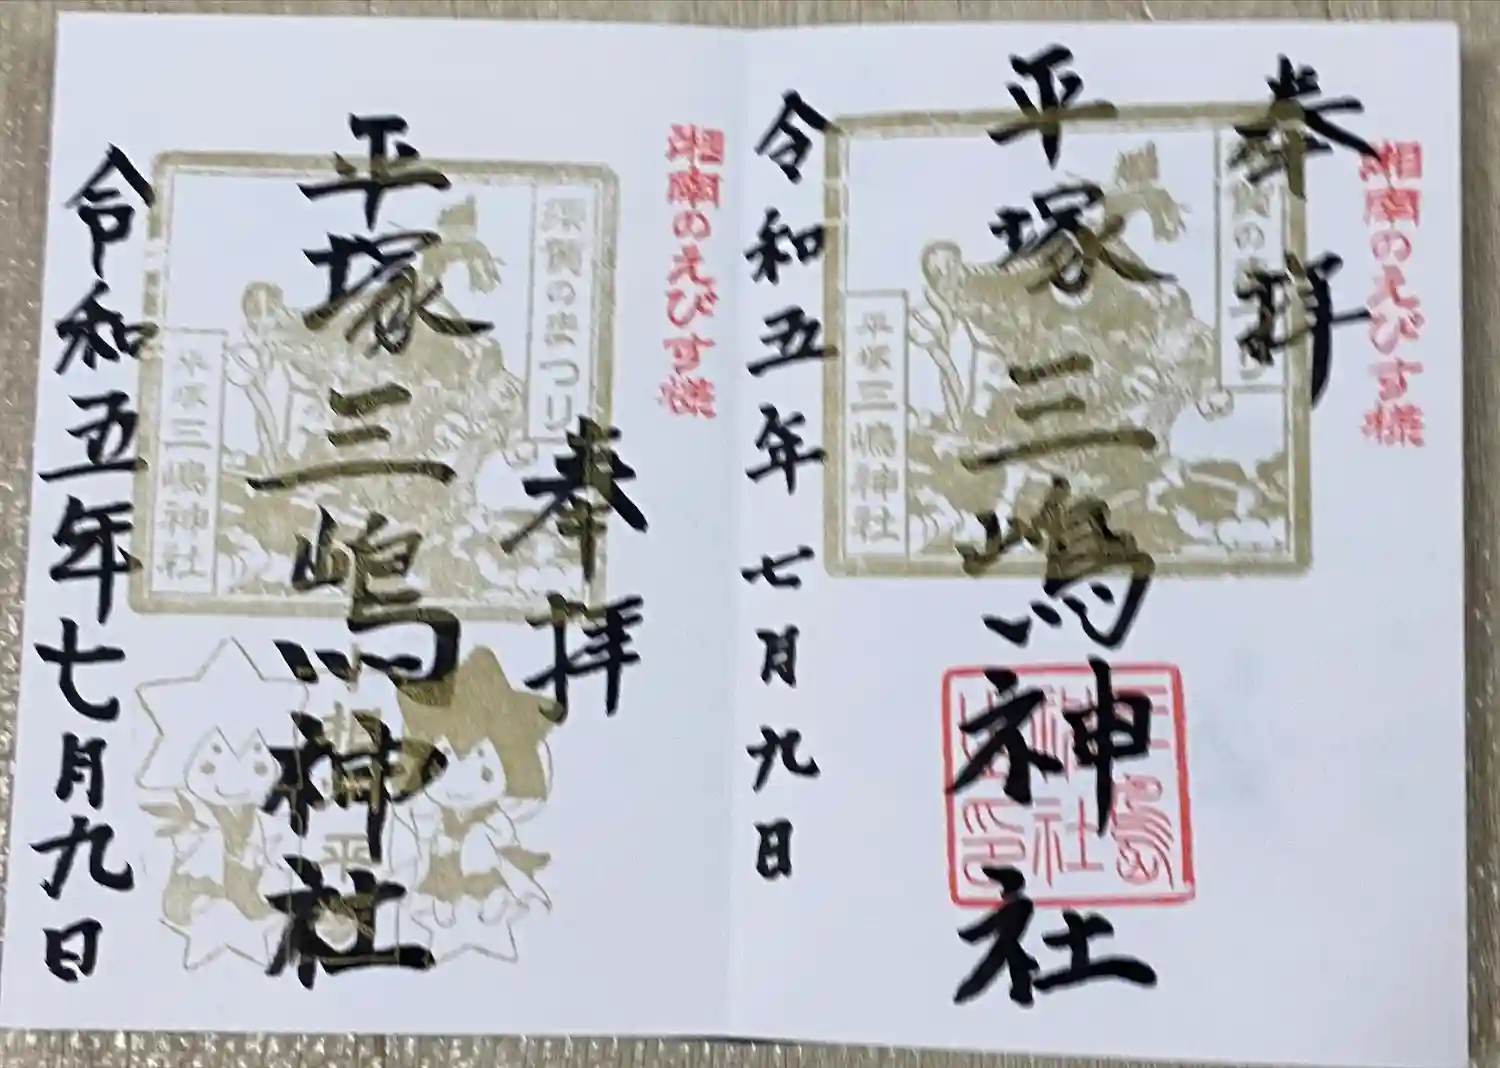 湘南のえびす様
奉拝
平塚三嶋神社
平塚三嶋神社
三嶋神社
令和五年七月九日
湘南のえびす様
須賀のまつり
奉拝
平塚三嶋神社
平塚三嶋神社
湘南平
令和五年七月九日